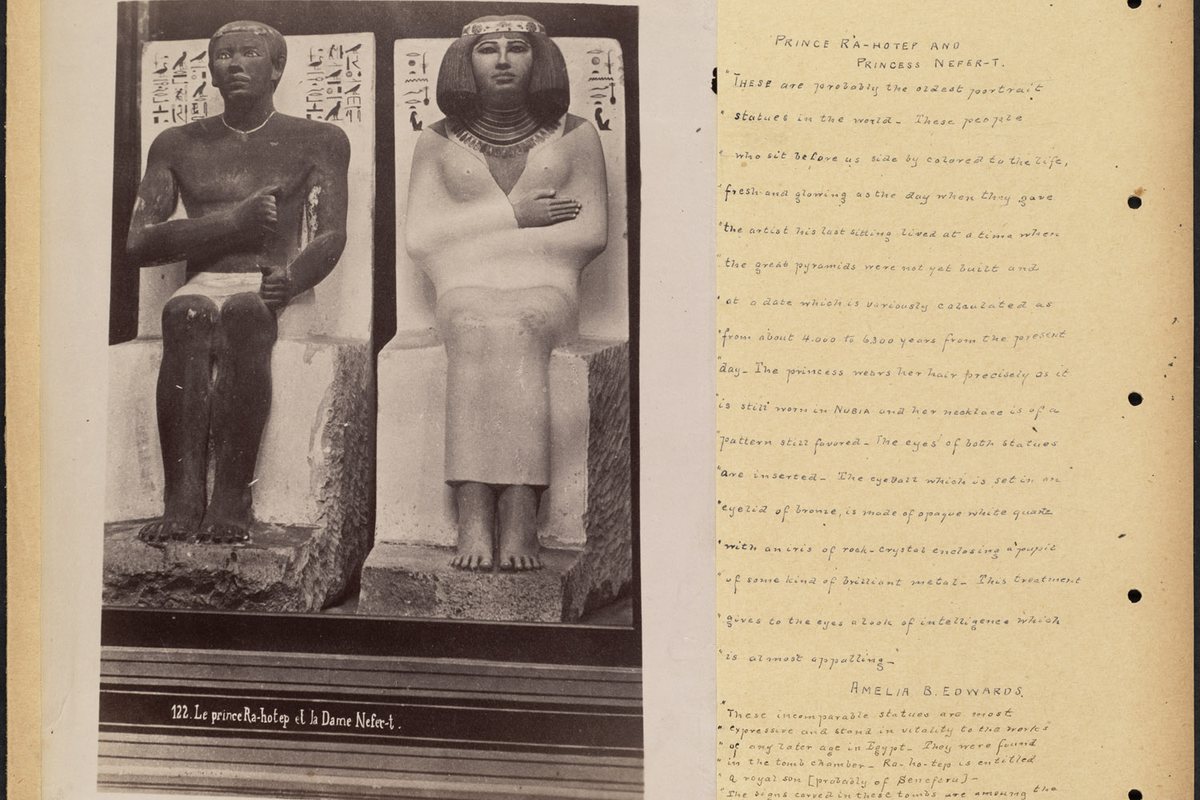 122. Le prince Ra-hotep et la Dame Nefer-t.
PRINCE RA-HOTEP AND
PRINCESS NEFER-T.
"THESE are probably the oldest portrait
" statues in the world_ These people
" who sit before us side by colored to the life,
"fresh and glowing as the day when they gave
"the artist his last sitting lived at a time when
"the great pyramids were not yet built and
"at a date which is variously calculated as
"from about 4.000 to 6300 years from the present
"day_ The princess wears her hair precisely as it
"is still worn in NUBIA and her necklace is of a
"pattern still favored_ The eyes of both statues
"are inserted_ The eyeball which is set in an
"eyelid of bronze, is made of opaque white quartz
"with an iris of rock-crystal enclosing a pupil
"of some kind of brilliant metal_ This treatment
"gives to the eyes a look of intelligence which
"is almost appalling_"
AMELIA B. EDWARDS.
"These incomparable statues are most
" expressive and stand in vitality to the works
" of any later age in Egypt_ They were found
" in the tomb chamber_ Ra-ho-tep is entitled
" a royal son [probably of Seneferu]_
" The signs carved in these tombs are among the